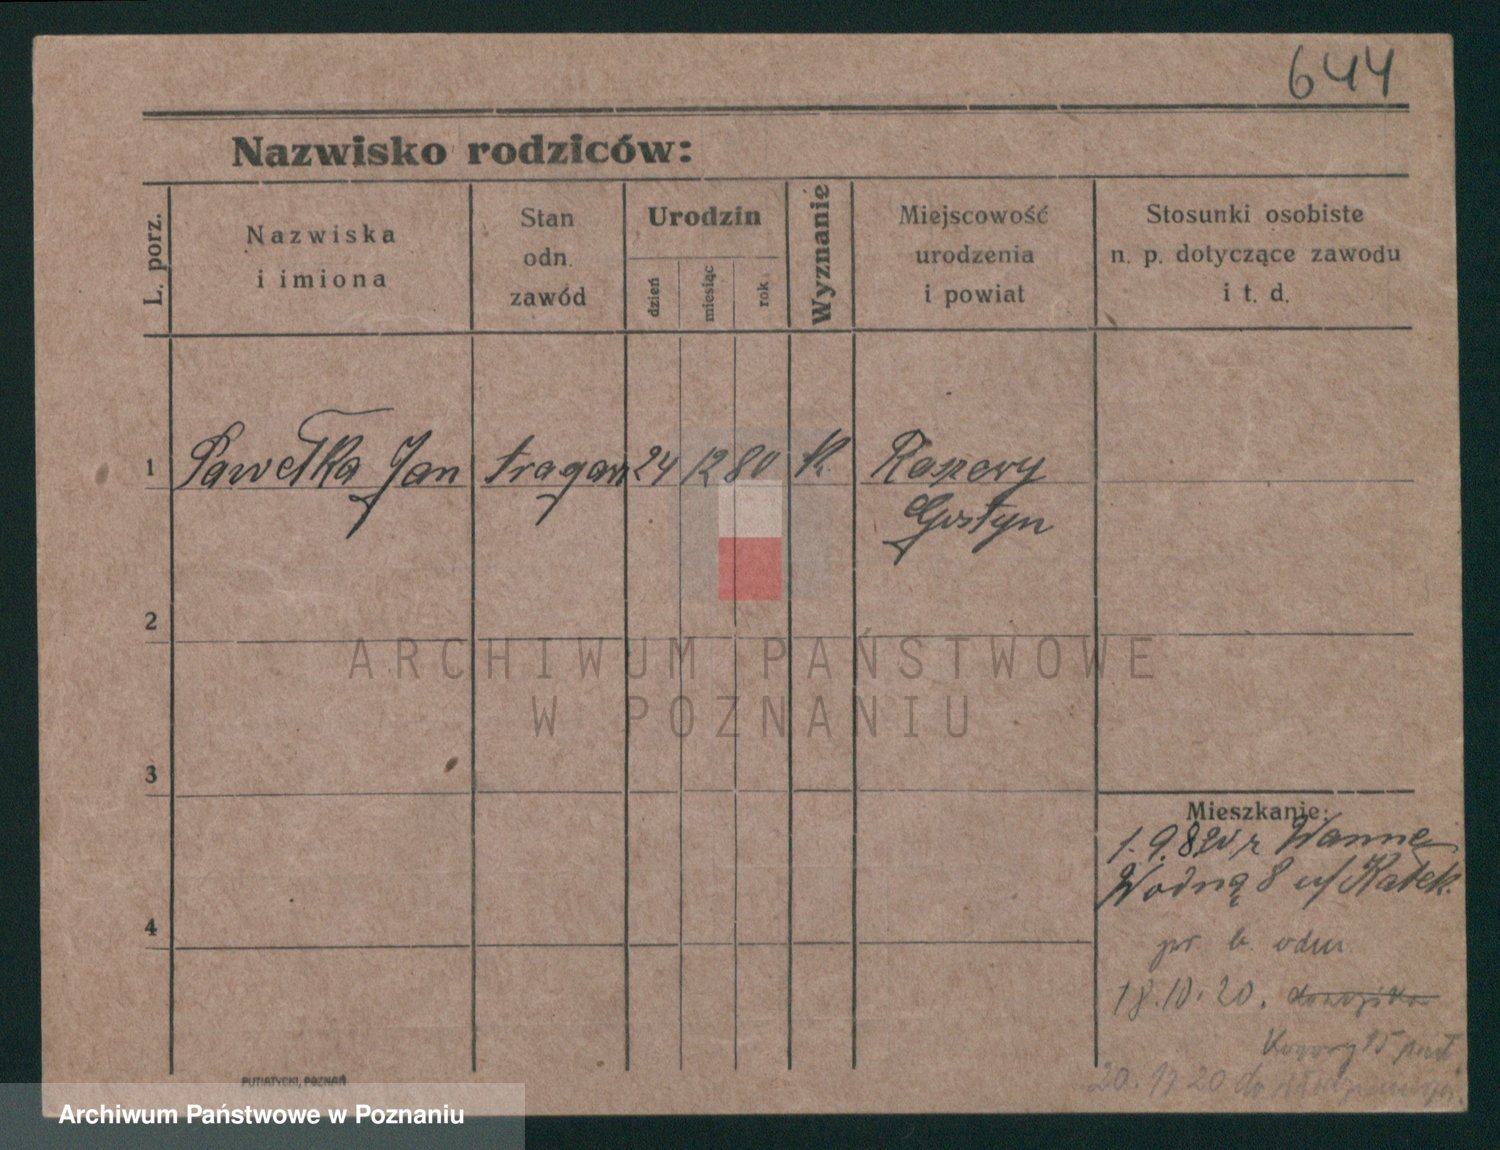 644
Nazwisko rodziców:
L. porz.
Nazwiska
i imiona
Stan
odn.
zawód
Urodzin
dzień
miesiąc
rok
Wyznanie
Miejscowość
urodzenia
i powiat
Stosunki osobiste
n. p. dotyczące zawodu
i t. d.
1 Pawełka Jan tragarz 24 12 80 K.
Gostyn
2
3
4
ARCHIWUM PAŃSTWOWE
W POZNANIU
Mieszkanie:
1. 9. 820 z Wanne
Wodną 8 u/ Ratek.
18.10.20.
20. 11 20 do
PUTIATYCKI, POZNAŃ
Archiwum Państwowe w Poznaniu